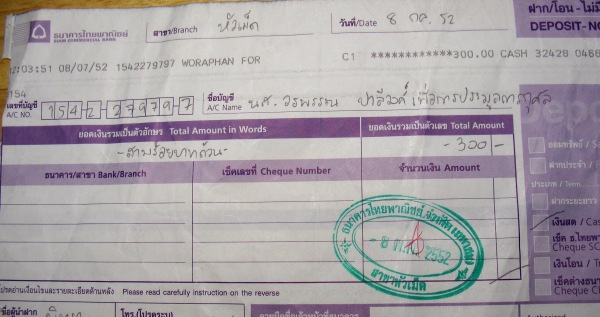 ธนาคารไทยพาณิชย์ สาขา/Branch หัวเม็ด วันที่/Date 8 กค. 52 ฝาก/โอน - ไม่
SIAM COMMERCIAL BANK DEPOSIT- N
:03:51 08/07/52 1542279797 WORAPHAN FOR C1 ************300.00 CASH 32428
154
เลขที่บัญชี ชื่อบัญชี
A/C NO. 154-2-27979-7 A/C Name นส. วรพรรณ เพื่อการประมูลการกุศล
ยอดเงินรวมเป็นตัวอักษร Total Amount in Words ยอดเงินรวมเป็นตัวเลข Total Amount
-สามร้อยบาทถ้วน- -300-
ธนาคาร/สาขา Bank/Branch เช็คเลขที่ Cheque Number จำนวนเงิน Amount
ออมทรัพย์ / Sa
ฝากประจำ /
ประเภท / Term
ฝากระยะยาว
เงินสด / Cas
เช็ค ธ.ไทยพา
Cheque SC
เงินโอน / Tr
เช็คต่างธนา
Cheque C
ธนาคารไทยพาณิชย์ จำกัด (มหาชน)
- 8 ก.ค. 2552
สาขาหัวเม็ด
โปรดอ่านเงื่อนไขและรายละเอียดด้านหลัง Please read carefully instruction on the reverse
ชื่อผู้นำฝาก โทร.(โปรดระบุ) Authorized